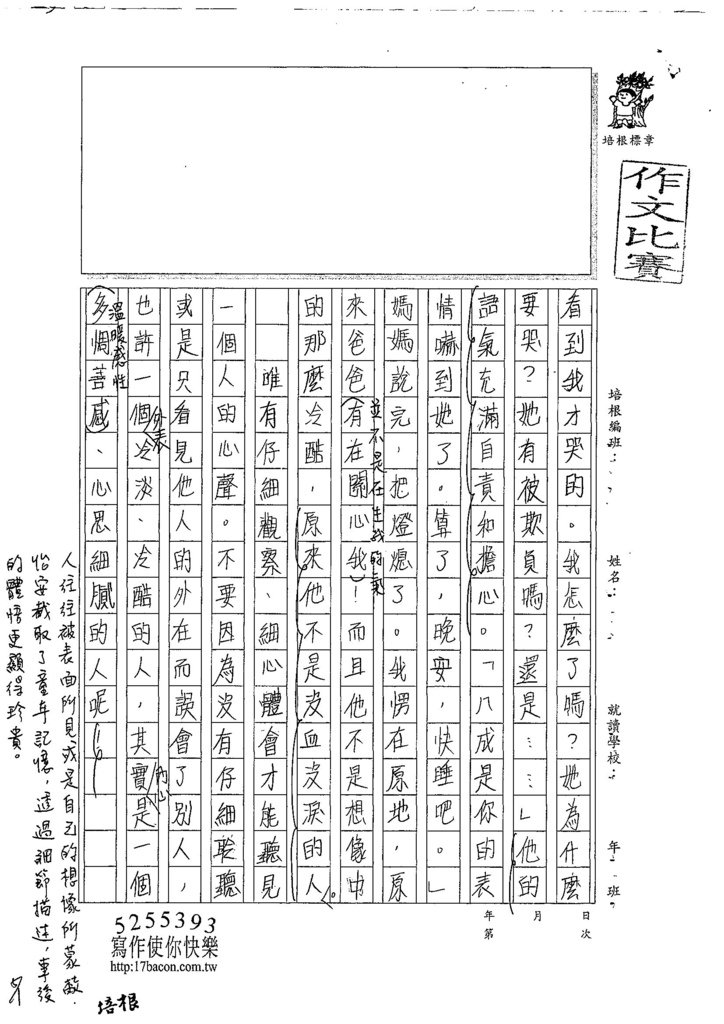 培根標章
作文比賽
培根編班:
姓名:
就讀學校:
年 班
年 月 日
第 次
看到我才哭的。我怎麼了嗎?她為什麼
要哭?她有被欺負嗎?還是……」他的
語氣充滿自責和擔心。「八成是你的表
情嚇到她了。算了,晚安,快睡吧。」
媽媽說完,把燈熄了。我愣在原地,原
來爸爸有在關心我!而且他不是想像中
並不是在生我的氣
的那麼冷酷,原來他不是沒血沒淚的人。
唯有仔細觀察、細心體會才能聽見
一個人的心聲。不要因為沒有仔細聆聽
或是只看見他人的外在而誤會了別人,
也許一個冷淡、冷酷的人,其實是一個
外表
內心
多惆善感、心思細膩的人呢!
溫暖感性
人往往被表面所見或是自己的想像所蒙蔽.
怡安截取了童年記憶,透過細節描述,事後
的體悟更顯得珍貴。
5255393
寫作使你快樂
http:17bacon.com.tw
培根